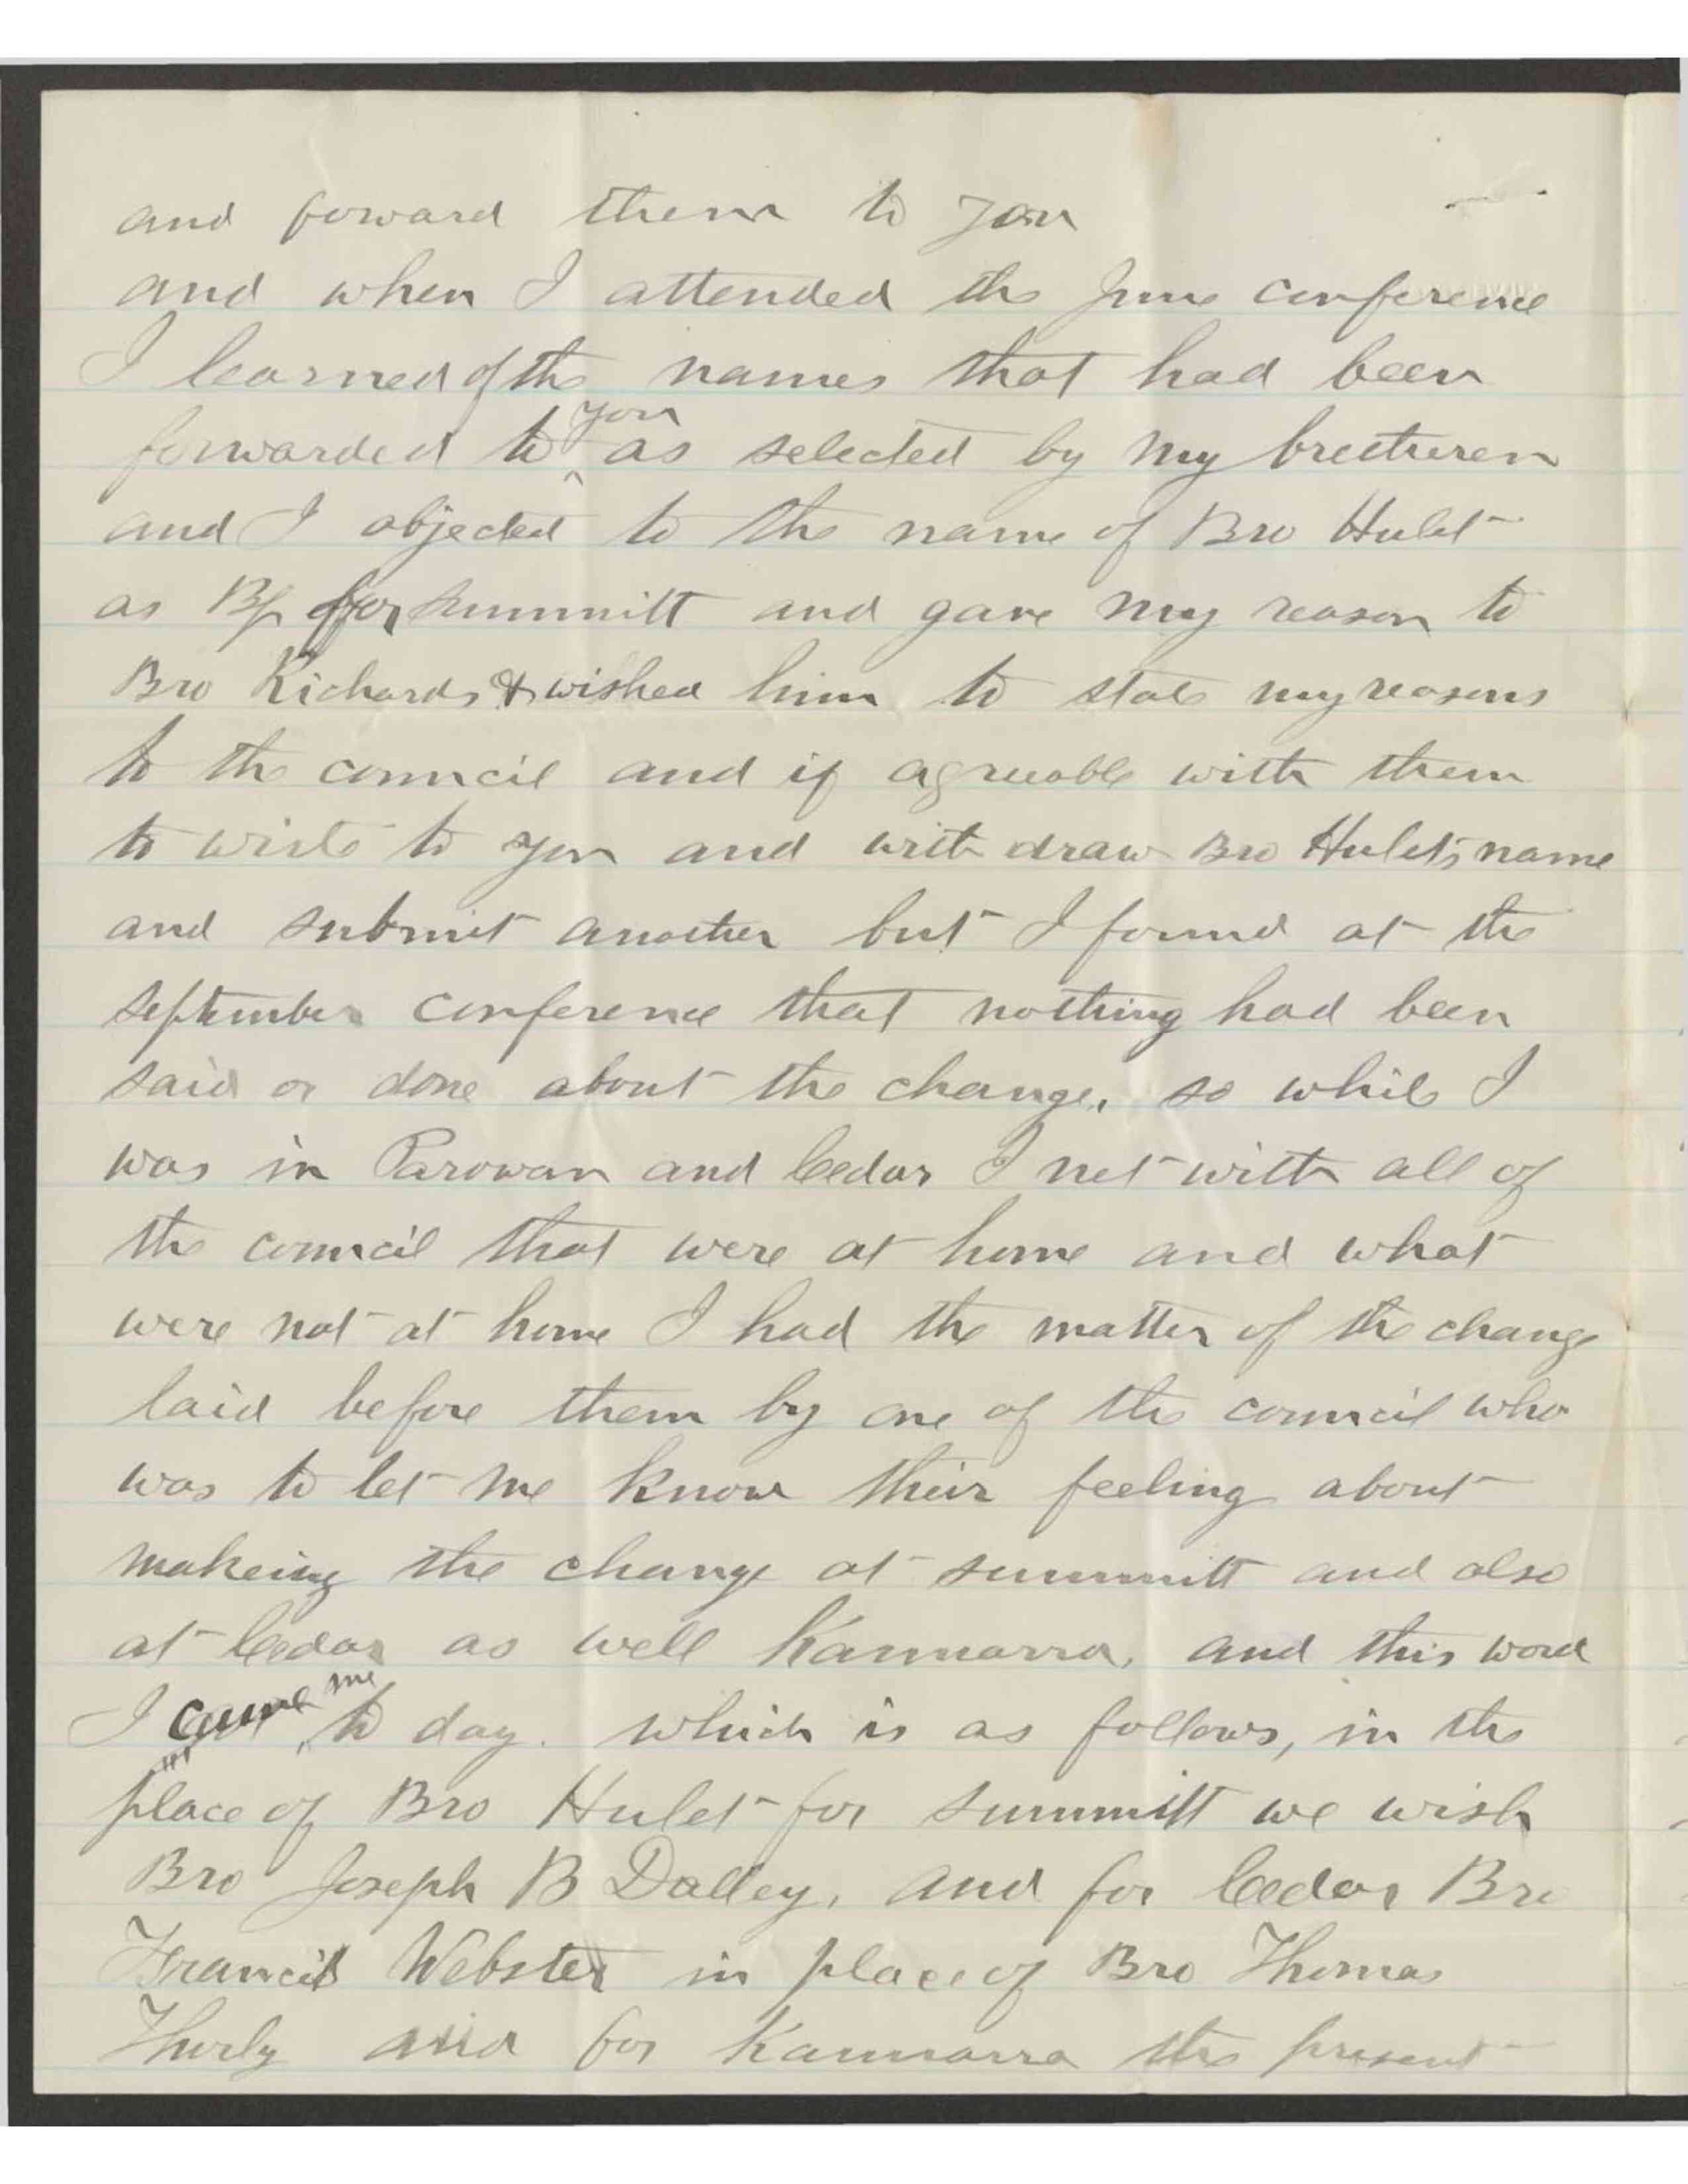 and foward them to you
and when I attended the June conference
I learned of the names that had been
forwarded to you as selected by my bretheren
and I objected to the name of Bro Hulet
as Bp for summitt and gave my reason to
Bro Richards & wished him to state my reasons
to the council and if agreeable with them
to write to you and with draw Bro Hulets name
and submit another but I found at the
September conference that nothing had been
said or done about the change, so while I
was in Parowan and Cedar I met with all of
the council that were at home and what
were not at home I had the matter of the change
laid before them by one of the council who
was to let me know their feeling about
makeing the change at summitt and also
at Cedar as well Kannarra, and this word
I came me to day. which is as follows, in the
place of Bro Hulet for summitt we wish
Bro Joseph B Dalley, and for Cedar Bro
Francis Webster in place of Bro Thomas
and for Kannarra the present